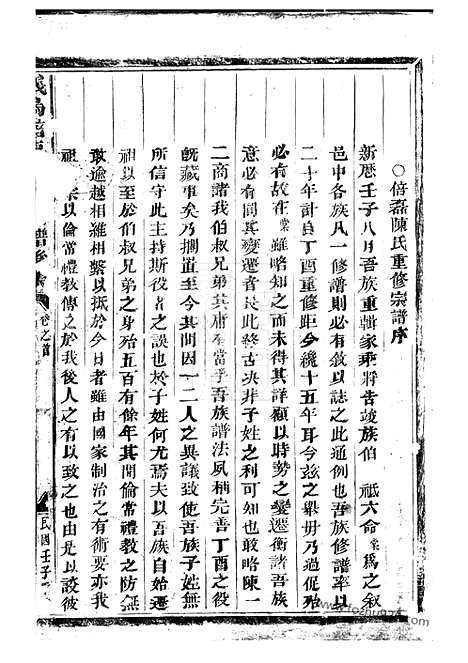 ○倍磊陳氏重修宗譜序
新歷壬子八月吾族重輯家乘將告竣族伯 祇六命棠爲之叙
邑中各族凡一修譜則必有敘以誌之此通例也吾族修譜率以
二十年計自丁酉重修距今纔十五年耳今茲之舉毌乃過促殆
必有故在棠雖略知之而未得其詳顧以時勢之變遷衡諸吾族
意必有同其變遷者長此終古决非子姓之利可知也敢略陳一
二商諸我伯叔兄弟其庸有當乎吾族譜法夙稱完善丁酉之役
旣蕆事矣乃擱置至今其間因一二人之異議致使吾族子姓無
所信守此主持斯役者之誤也於子姓何尤焉夫以吾族自始遷
祖以至於伯叔兄弟之身殆五百有餘年其閒倫常禮教之防無
敢逾越相維相繫以抵於今日者雖由國家制治之有術要亦我
祖 以倫常禮教傳之於我後人之有以致之也由是以談彼
譜
卷之首
民國壬子
www.fozhu920.com